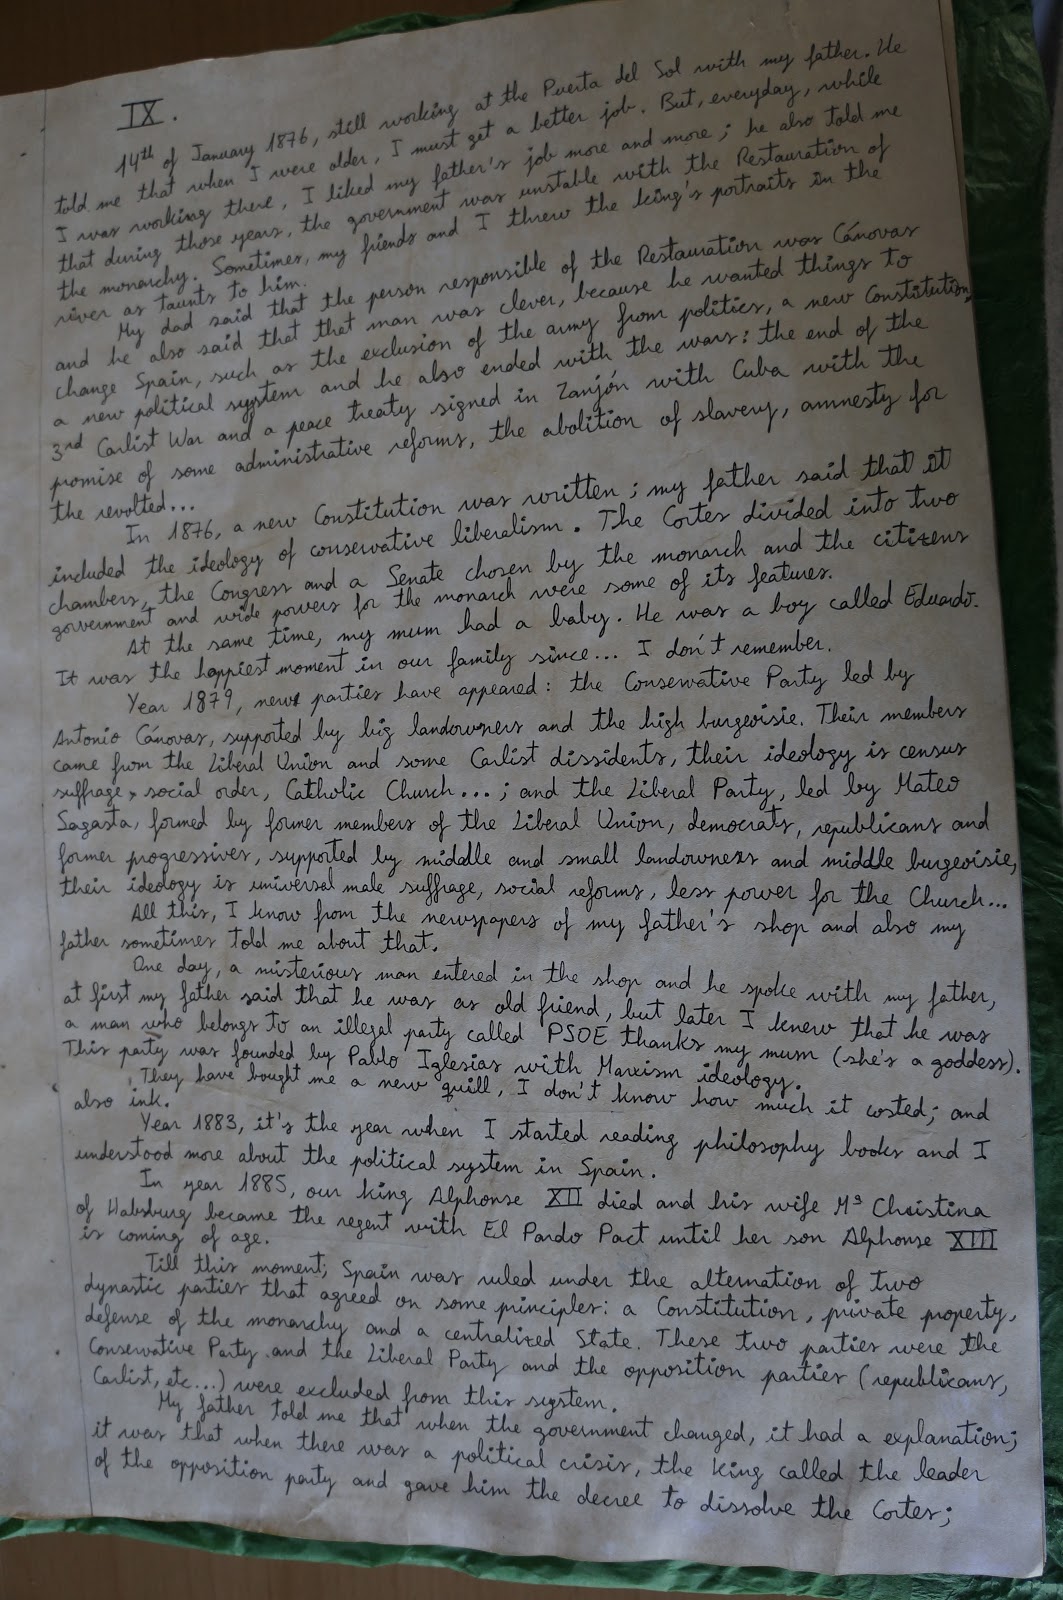 IX.
14th of January 1876, still working at the Puerta del Sol with my father. He
told me that when I were older, I must get a better job. But, everyday, while
I was working there, I liked my father's job more and more; he also told me
that during those years, the government was unstable with the Restauration of
the monarchy. Sometimes, my friends and I threw the king's portraits in the
river as taunts to him.
My dad said that the person responsible of the Restauration was Cánovas
and he also said that that man was clever, because he wanted things to
change Spain, such as the exclusion of the army from politics, a new Constitution,
a new political system and he also ended with the wars: the end of the
3rd Carlist War and a peace treaty signed in Zanjón with Cuba with the
promise of some administrative reforms, the abolition of slavery, amnesty for
the revolted...
In 1876, a new Constitution was written; my father said that it
included the ideology of conservative liberalism. The Cortes divided into two
chambers, the Congress and a Senate chosen by the monarch and the citizens
government and wide powers for the monarch were some of its features.
At the same time, my mum had a baby. He was a boy called Eduardo.
It was the happiest moment in our family since... I don't remember.
Year 1879, news parties have appeared: the Conservative Party led by
Antonio Cánovas, supported by big landowners and the high burgeoisie. Their members
came from the Liberal Union and some Carlist dissidents, their ideology is census
suffrage, social order, Catholic Church...; and the Liberal Party, led by Mateo
Sagasta, formed by former members of the Liberal Union, democrats, republicans and
former progressives, supported by middle and small landowners and middle burgeoisie,
their ideology is universal male suffrage, social reforms, less power for the Church...
All this, I know from the newspapers of my father's shop and also my
father sometimes told me about that.
One day, a misterious man entered in the shop and he spoke with my father,
at first my father said that he was as old friend, but later I knew that he was
a man who belongs to an illegal party called PSOE thanks my mum (she's a goddess).
This party was founded by Pablo Iglesias with Marxism ideology.
They have bought me a new quill, I don't know how much it costed; and
also ink.
Year 1883, it's the year when I started reading philosophy books and I
understood more about the political system in Spain.
In year 1885, our king Alphonse XII died and his wife Mª Christina
of Habsburg became the regent with El Pardo Pact until her son Alphonse XIII
is coming of age.
Till this moment, Spain was ruled under the alternation of two
dynastic parties that agreed on some principles: a Constitution, private property,
defense of the monarchy and a centralized State. These two parties were the
Conservative Party and the Liberal Party and the opposition parties (republicans,
Carlist, etc...) were excluded from this system.
My father told me that when the government changed, it had a explanation;
it was that when there was a political crisis, the king called the leader
of the opposition party and gave him the decree to dissolve the Cortes;